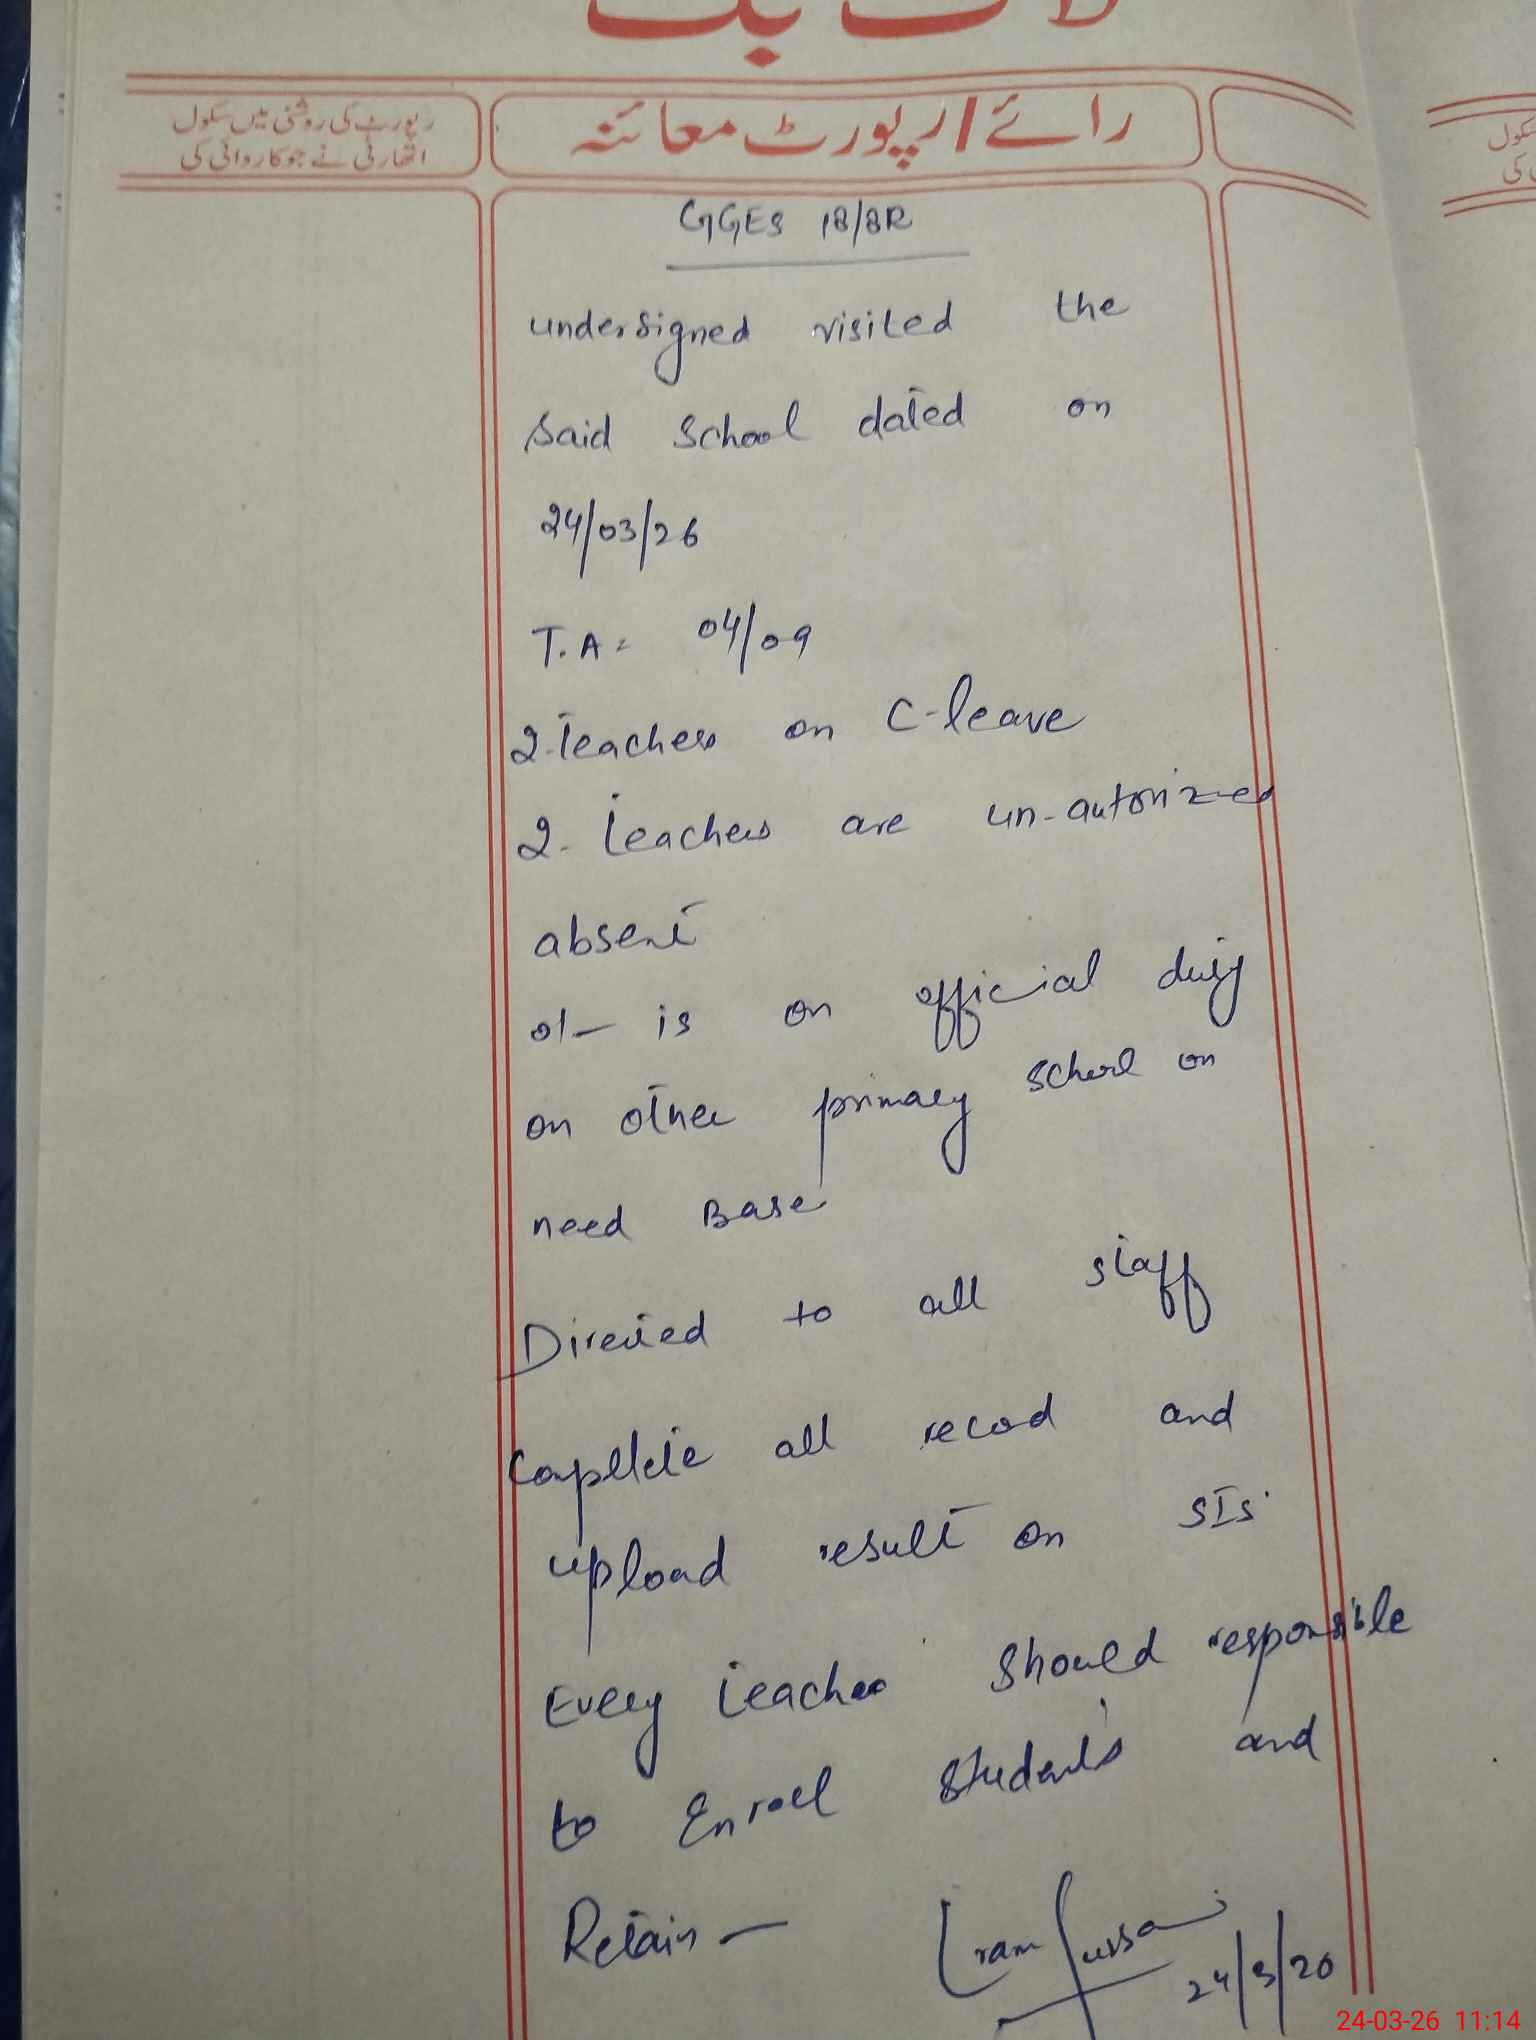 لاگ بک
رپورٹ کی روشنی میں سکول
اتھارٹی نے جو کاروائی کی
رائے / رپورٹ معائنہ
سکول
کی
GGES 18/8R
undersigned visited the
said school dated on
24/03/26
T.A = 04/09
2-teachers on C-leave
2- teachers are un-autorized
absent
01- is on official duty
on other primary school on
need Base
Directed to all staff
Complete all record and
upload result on SIS.
Every teacher should responsible
to Enroll students and
Retain -
Iram Hussain
24/3/20
24-03-26 11:14